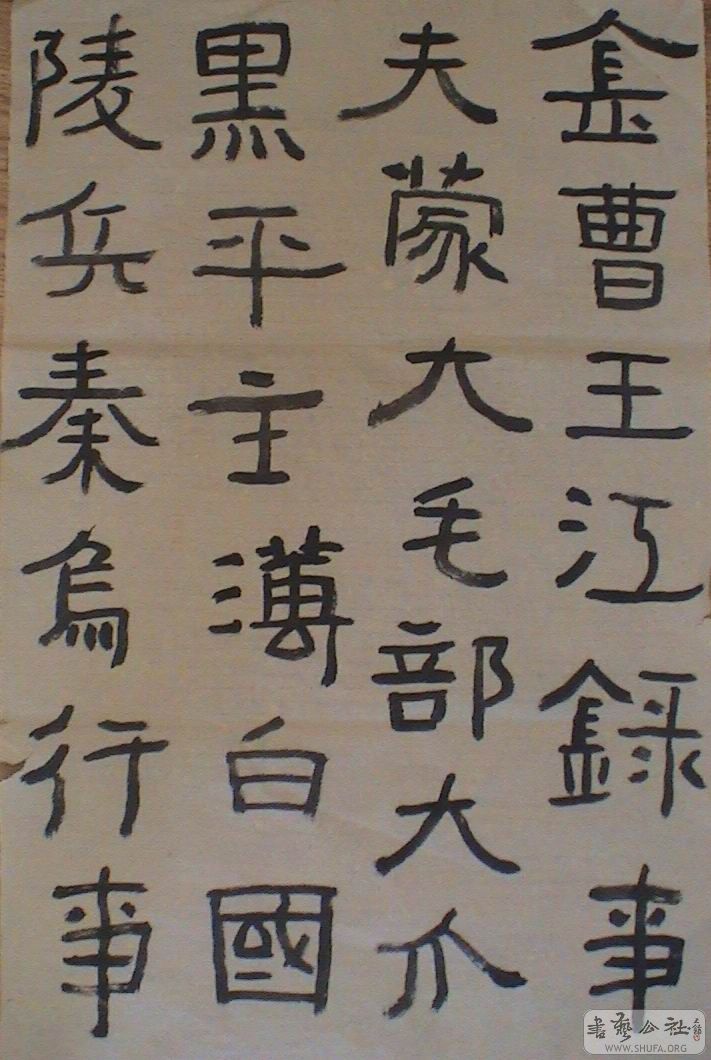 金曹王江録事
夫蒙大毛部大爪
黒平主薄白國
陵兵秦烏行事
書藝公社
WWW.SHUFA.ORG